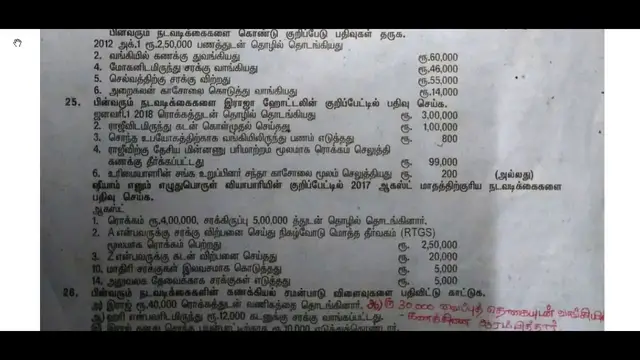 பின்வரும் நடவடிக்கைகளை கொண்டு குறிப்பேடு பதிவுகள் தருக.
2012 அக்.1 ரூ.2,50,000 பணத்துடன் தொழில் தொடங்கியது
2. வங்கியில் கணக்கு துவங்கியது ரூ.60,000
4. மோகனிடமிருந்து சரக்கு வாங்கியது ரூ.46,000
5. செல்வத்திற்கு சரக்கு விற்றது ரூ.55,000
6. அறைகலன் காசோலை கொடுத்து வாங்கியது ரூ.14,000
25. பின்வரும் நடவடிக்கைகளை இராஜா ஹோட்டலின் குறிப்பேட்டில் பதிவு செய்க.
ஜனவரி.1 2018 ரொக்கத்துடன் தொழில் தொடங்கியது ரூ. 3,00,000
2. ராஜீவிடமிருந்து கடன் கொள்முதல் செய்தது ரூ. 1,00,000
3. சொந்த உபயோகத்திற்காக வங்கியிலிருந்து பணம் எடுத்தது ரூ. 800
4. ராஜீவிற்கு தேசிய மின்னணு பரிமாற்றம் மூலமாக ரொக்கம் செலுத்தி
கணக்கு தீர்க்கப்பட்டது ரூ. 99,000
6. உரிமையாளரின் சங்க உறுப்பினர் சந்தா காசோலை மூலம் செலுத்தியது ரூ. 200 (அல்லது)
ஷியாம் எனும் எழுதுபொருள் வியாபாரியின் குறிப்பேட்டில் 2017 ஆகஸ்ட் மாதத்திற்குரிய நடவடிக்கைகளை
பதிவு செய்க.
ஆகஸ்ட்
1. ரொக்கம் ரூ.4,00,000, சரக்கிருப்பு 5,00,000 த்துடன் தொழில் தொடங்கினார்.
2. A என்பவருக்கு சரக்கு விற்பனை செய்து நிகழ்வோடு மொத்த தீர்வகம் (RTGS)
மூலமாக ரொக்கம் பெற்றது ரூ. 2,50,000
3. Z என்பவருக்கு கடன் விற்பனை செய்தது ரூ. 20,000
10. மாதிரி சரக்குகள் இலவசமாக கொடுத்தது ரூ. 5,000
14. அலுவலக தேவைக்காக சரக்குகள் எடுத்தது ரூ. 5,000
26. பின்வரும் நடவடிக்கைகளின் கணக்கியல் சமன்பாடு விளைவுகளை பதிவிட்டு காட்டுக.
அ) இராஜ் ரூ.40,000 ரொக்கத்துடன் வணிகத்தை தொடங்கினார். ஆ) ரூ 30,000 வைப்புத் தொகையுடன் வங்கியில்
ஆ) ஹரி என்பவரிடமிருந்து ரூ.12,000 கடனுக்கு சரக்கு வாங்கப்பட்டது. - கணக்கினை ஆரம்பித்தார்